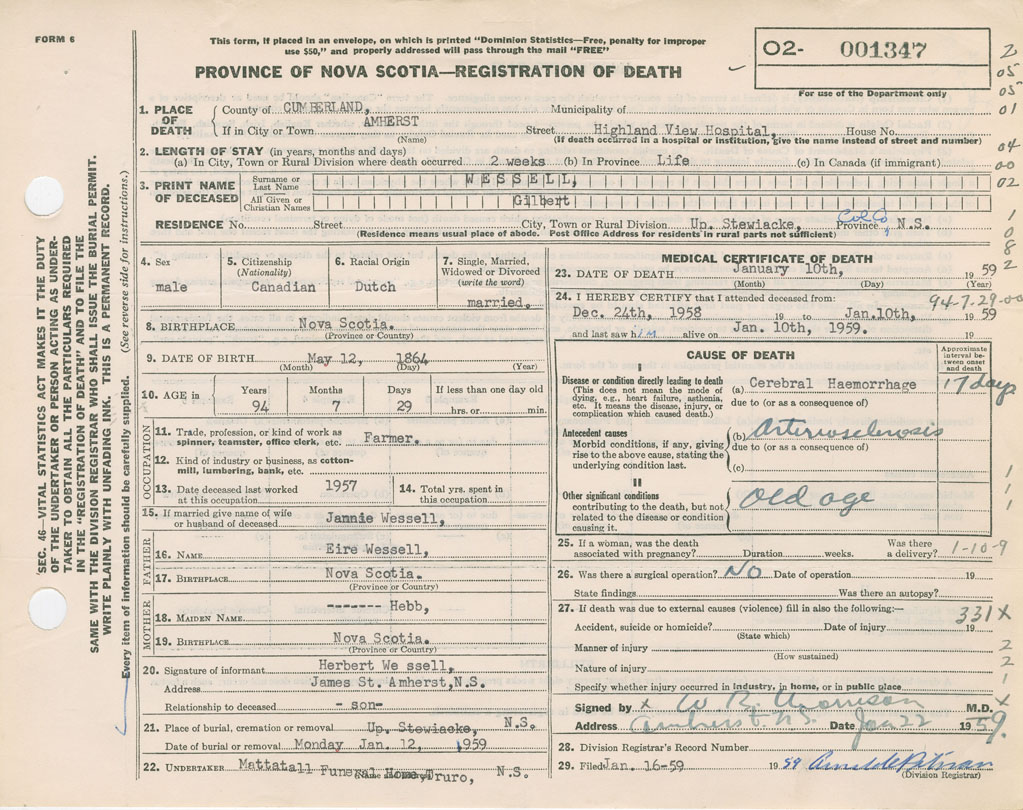 FORM 6
This form, if placed in an envelope, on which is printed "Dominion Statistics—Free, penalty for improper
use $50," and properly addressed will pass through the mail "FREE"
PROVINCE OF NOVA SCOTIA—REGISTRATION OF DEATH
02- 001347
For use of the Department only
2
05
05
01
04
00
02
1
0
8
2
SEC. 46—VITAL STATISTICS ACT MAKES IT THE DUTY
OF THE UNDERTAKER OR PERSON ACTING AS UNDER-
TAKER TO OBTAIN ALL THE PARTICULARS REQUIRED
IN THE "REGISTRATION OF DEATH" AND TO FILE THE
SAME WITH THE DIVISION REGISTRAR WHO SHALL ISSUE THE BURIAL PERMIT.
WRITE PLAINLY WITH UNFADING INK. THIS IS A PERMANENT RECORD.
Every item of information should be carefully supplied. (See reverse side for instructions.)
1. PLACE OF DEATH
County of CUMBERLAND, Municipality of
If in City or Town AMHERST Street Highland View Hospital, House No.
(Name) (If death occurred in a hospital or institution, give the name instead of street and number)
2. LENGTH OF STAY (in years, months and days)
(a) In City, Town or Rural Division where death occurred 2 weeks (b) In Province Life (c) In Canada (if immigrant)
3. PRINT NAME OF DECEASED
Surname or Last Name WESSELL,
All Given or Christian Names Gilbert
RESIDENCE No. Street City, Town or Rural Division Up. Stewiacke, Col Co Province N.S.
(Residence means usual place of abode. Post Office Address for residents in rural parts not sufficient)
4. Sex
male
5. Citizenship
(Nationality)
Canadian
6. Racial Origin
Dutch
7. Single, Married,
Widowed or Divorced
(write the word)
married.
8. BIRTHPLACE Nova Scotia.
(Province or Country)
9. DATE OF BIRTH May 12, 1864
(Month) (Day) (Year)
10. AGE in
Years Months Days If less than one day old
94 7 29 hrs. or min.
OCCUPATION
11. Trade, profession, or kind of work as
spinner, teamster, office clerk, etc. Farmer.
12. Kind of industry or business, as cotton-
mill, lumbering, bank, etc.
13. Date deceased last worked
at this occupation 1957
14. Total yrs. spent in
this occupation
15. If married give name of wife
or husband of deceased Jannie Wessell,
FATHER
16. NAME Eire Wessell,
17. BIRTHPLACE Nova Scotia.
(Province or Country)
MOTHER
18. MAIDEN NAME ------- Hebb,
19. BIRTHPLACE Nova Scotia.
(Province or Country)
20. Signature of informant Herbert We ssell,
Address James St. Amherst,N.S.
Relationship to deceased - son-
21. Place of burial, cremation or removal Up. Stewiacke, N.S.
Date of burial or removal Monday Jan. 12, 1959
22. UNDERTAKER Mattatall Funeral Home,Truro, N.S.
MEDICAL CERTIFICATE OF DEATH
23. DATE OF DEATH January 10th, 1959
(Month) (Day) (Year)
24. I HEREBY CERTIFY that I attended deceased from: 94-7-29-00
Dec. 24th, 1958 19 to Jan.10th, 1959
and last saw h im alive on Jan. 10th, 1959. 19
CAUSE OF DEATH
Approximate
interval be-
tween onset
and death
I
Disease or condition directly leading to death
(This does not mean the mode of
dying, e.g., heart failure, asthenia,
etc. It means the disease, injury, or
complication which caused death.)
(a) Cerebral Haemorrhage 17 days
due to (or as a consequence of)
Antecedent causes
Morbid conditions, if any, giving
rise to the above cause, stating the
underlying condition last.
(b) Arteriosclerosis
due to (or as a consequence of)
(c)
II
Other significant conditions
contributing to the death, but not
related to the disease or condition
causing it.
Old age
1
1
1
25. If a woman, was the death
associated with pregnancy? Duration weeks. Was there
a delivery? 1-10-9
26. Was there a surgical operation? NO Date of operation 19
State findings Was there an autopsy?
27. If death was due to external causes (violence) fill in also the following:— 331X
Accident, suicide or homicide? Date of injury 19
(State which)
Manner of injury 2
(How sustained)
Nature of injury 2
Specify whether injury occurred in industry, in home, or in public place 1
Signed by x W R Morrison M.D. x
Address Amherst N.S. Date Jan 22 1959.
28. Division Registrar's Record Number
29. Filed Jan. 16-59 19 59
(Division Registrar)